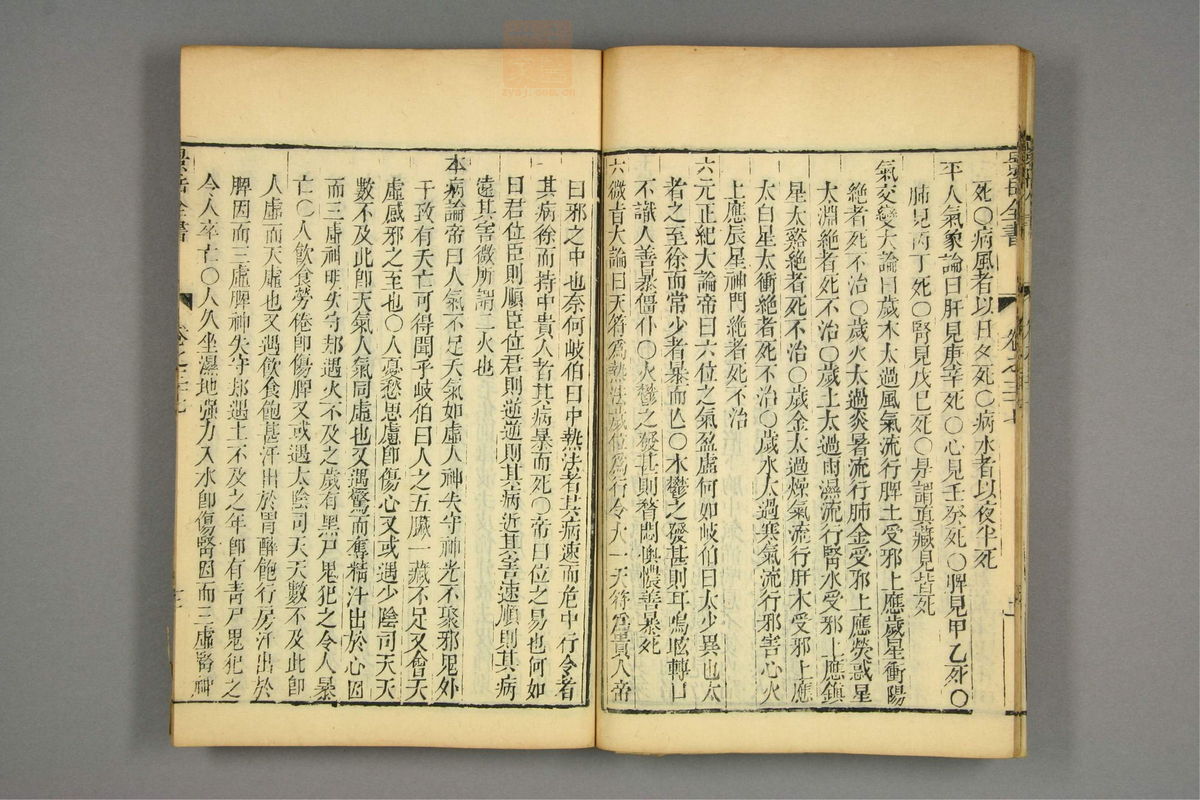 景岳全書
卷之三十七
死○病風者以日夕死○病水者以夜半死
平人氣象論曰肝見庚辛死○心見壬癸死○脾見甲乙死○
肺見丙丁死○腎見戊巳死○是謂眞藏見皆死
氣交變大論曰歲木太過風氣流行脾土受邪上應歲星衝陽
絶者死不治○歲火太過炎暑流行肺金受邪上應熒惑星
太淵絶者死不治○歲土太過雨濕流行腎水受邪上應鎮
星太谿絶者死不治○歲金太過燥氣流行肝木受邪上應
太白星太衝絶者死不治○歲水太過寒氣流行邪害心火
上應辰星神門絶者死不治
六元正紀大論帝曰六位之氣盈虛何如岐伯曰太少異也太
者之至徐而常少者暴而亡○木鬱之發甚則耳鳴眩轉目
不識人善暴僵仆○火鬱之發甚則瞀悶懊憹善暴死
六微旨大論曰天符爲執法歲位爲行令太一天符爲貴人帝
曰邪之中也奈何岐伯曰中執法者其病速而危中行令者
其病徐而持中貴人者其病暴而死○帝曰位之易也何如
曰君位臣則順臣位君則逆逆則其病近其害速順則其病
遠其害微所謂二火也
本病論帝曰人氣不足天氣如虛人神失守神光不聚邪鬼外
干致有夭亡可得聞乎岐伯曰人之五臟一藏不足又會天
虛感邪之至也○人憂愁思慮卽傷心又或遇少陰司天天
數不及此卽天氣人氣同虛也又遇驚而奪精汗出於心因
而三虛神明失守却遇火不及之歲有黑尸鬼犯之令人暴
亡○人飮食勞倦卽傷脾又或遇太陰司天天數不及此卽
人虛而天虛也又遇飮食飽甚汗出於胃醉飽行房汗出於
脾因而三虛脾神失守却遇土不及之年卽有靑尸鬼犯之
令人卒亡○人久坐濕地强力入水卽傷腎因而三虛腎神
景岳全書
卷之三十七